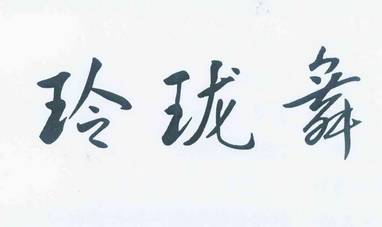 玲珑舞